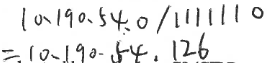 10.190.54.0/1111110
=10.190.54.126